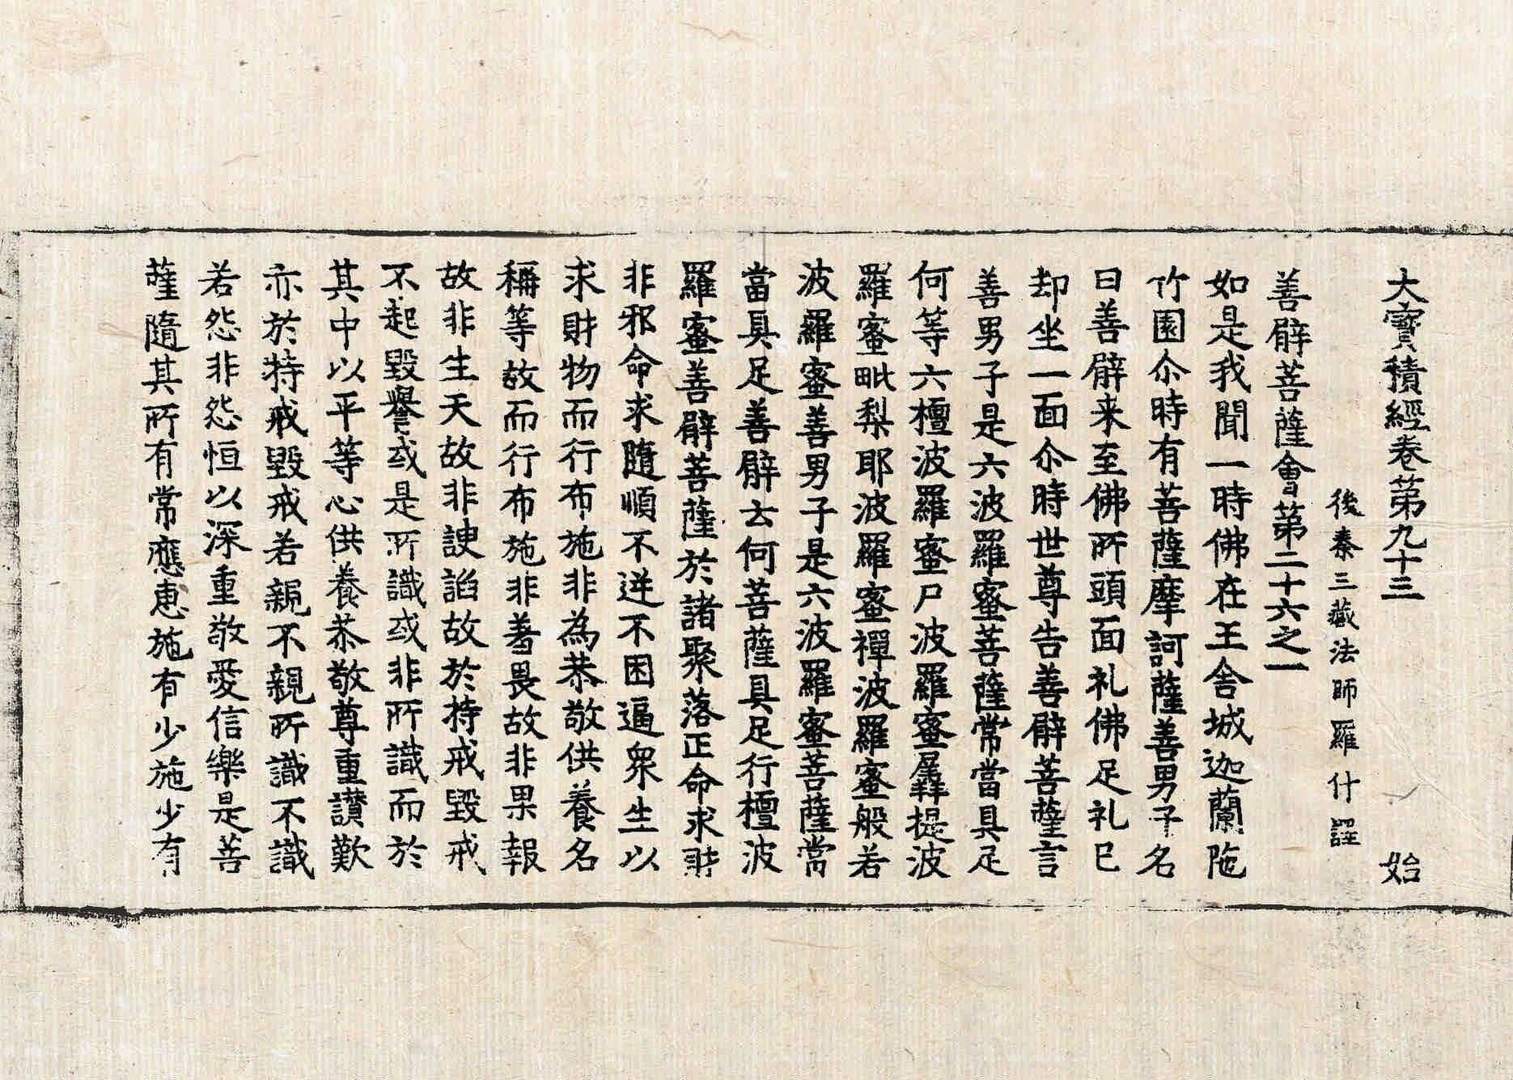 大寶積經卷第九十三　始
後秦三藏法師羅什譯
善臂菩薩會第二十六之一
如是我聞一時佛在王舍城迦蘭陁
竹園尒時有菩薩摩訶薩善男子名
曰善臂来至佛所頭面礼佛足礼已
却坐一面尒時世尊告善臂菩薩言
善男子是六波羅蜜菩薩常當具足
何等六檀波羅蜜尸波羅蜜羼提波
羅蜜毗梨耶波羅蜜禪波羅蜜般若
波羅蜜善男子是六波羅蜜菩薩常
當具足善臂云何菩薩具足行檀波
羅蜜善臂菩薩於諸聚落正命求財
非邪命求隨順不逆不困逼衆生以
求財物而行布施非為恭敬供養名
稱等故而行布施非羞畏故非果報
故非生天故非諛諂故於持戒毀戒
不起毀譽或是所識或非所識而於
其中以平等心供養恭敬尊重讃歎
亦於持戒毀戒若親不親所識不識
若怨非怨恒以深重敬愛信樂是菩
薩隨其所有常應惠施有少施少有